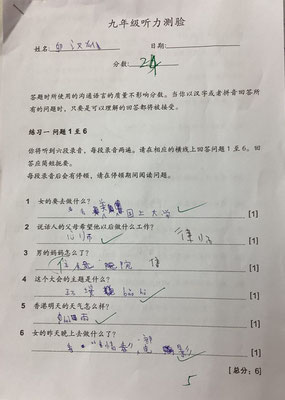 九年级听力测验
姓名: 日期:
分数: 24
答题时所使用的沟通语言的质量不影响分数。当你以汉字或者拼音回答所
有的问题时，只要是可以理解的回答都将被接受。
练习一 问题 1 至 6
你将听到六段录音，每段录音两遍。请在相应的横线上回答问题 1 至 6。回
答应简短扼要。
每段录音后会有停顿，请在停顿期间阅读问题。
1 女的要去做什么?
国上大学 [1]
2 说话人的父母希望他以后做什么工作?
律师 [1]
3 男的妈妈怎么了?
住 院 住 [1]
4 这个大会的主题是什么?
[1]
5 香港明天的天气怎么样?
雨 [1]
6 女的昨天晚上去做什么了?
看 电影 [1]
[总分: 6]
5